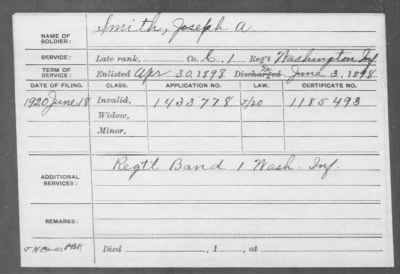 NAME OF SOLDIER: Smith, Joseph A
SERVICE: Late rank, Co. C, 1 Reg't Washington Inf
TERM OF SERVICE: Enlisted Apr 30, 1898 Discharged June 3, 1898
DATE OF FILING. CLASS. APPLICATION NO. LAW. CERTIFICATE NO.
1920 June 18 Invalid, 1433778 J/20 1185493
Widow,
Minor,
ADDITIONAL SERVICES: Regtl Band 1 Wash. Inf.
REMARKS:
Died , 1 , at